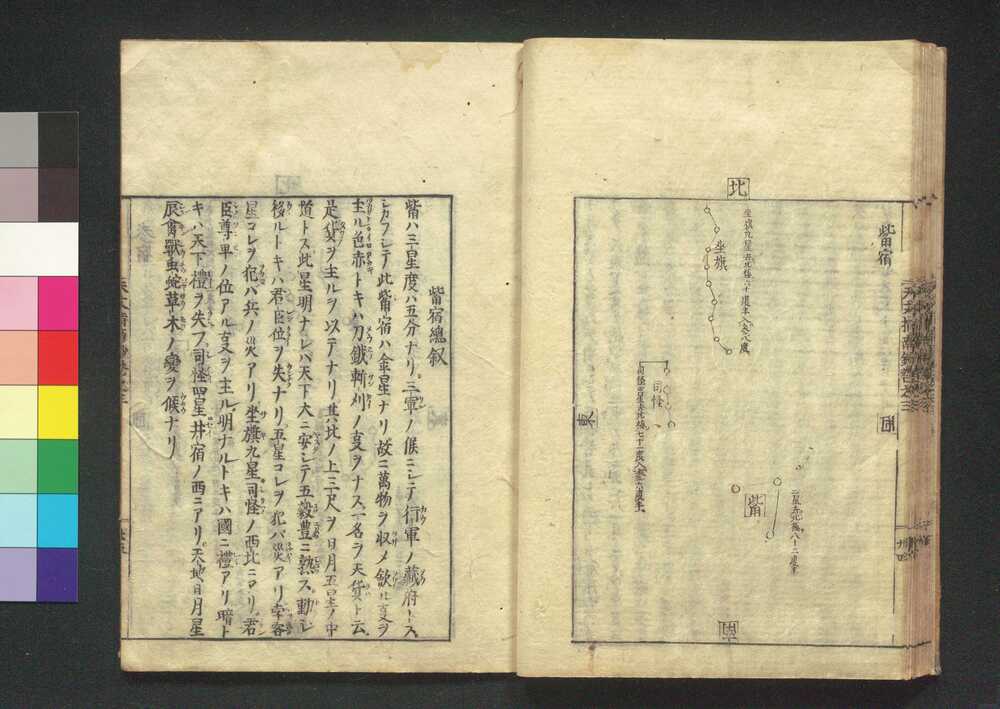 觜宿
北
坐旗九星去北極六十一度半入参八度
坐旗
司怪
東
觜
觜宿總叙
觜ハ三星度ハ五分ナリ三軍ノ候ニシテ行軍ノ藏府トス
シカフシテ此觜宿ハ金星ナリ故ニ萬物ヲ収メ斂ル叓ヲ
主ル色赤トキハ刀鉞斬刈ノ叓ヲナス一名ヲ天貨ト云
是貨ヲ主ルヲ以テナリ其北ノ上三尺ヲ日月五星ノ中
道トス此星明ナレバ天下大ニ安シテ五穀豊ニ熟ス動シ
移ルトキハ君臣位ヲ失ナリ五星コレヲ犯バ災アリ客
星コレヲ犯バ兵ノ災アリ坐旗九星司怪ノ西北ニアリ君
臣尊卑ノ位アル叓ヲ主ル明ナルトキハ國ニ禮アリ暗ト
キハ天下禮ヲ失フ司怪四星井宿ノ西ニアリ天地日月星
辰禽獸虫蛇草木ノ變ヲ候ナリ